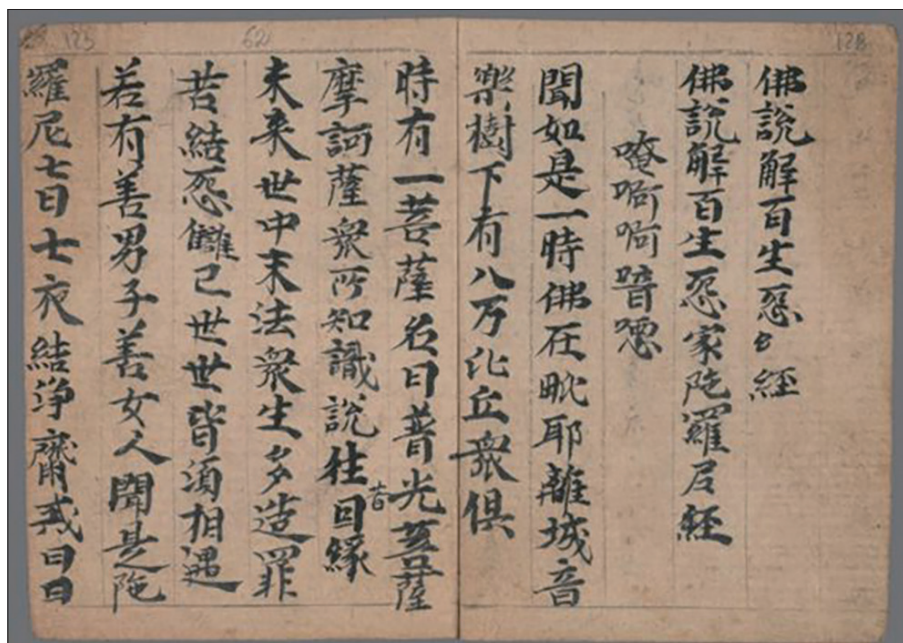 128
佛說解百生惌經
佛說解百生惌家陁羅尼經
唵啊啊暗噁
聞如是一時佛在毗耶離城音
樂樹下有八万比丘衆俱
62
125
時有一菩薩名曰普光菩薩
摩訶薩衆所知識說往昔因緣
未来世中末法衆生多造罪
苦結惌讎已世世皆須相遇
若有善男子善女人聞是陁
羅尼七日七夜結淨齋戒日日